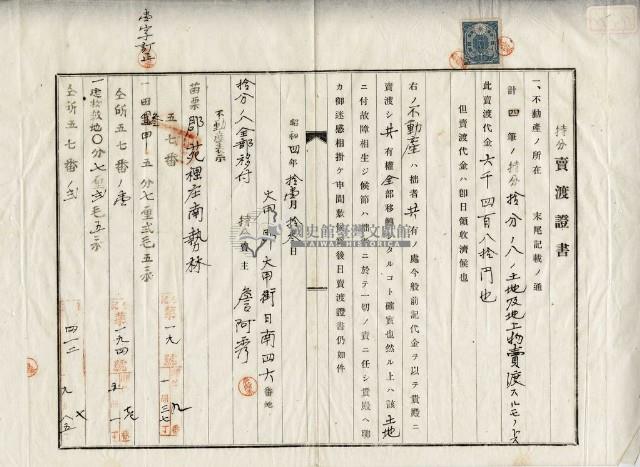 持分賣渡證書
一、不動産ノ所在　末尾記載ノ通
計四筆ノ持分拾分ノ八ノ土地及地上物賣渡スルモノ也
此賣渡代金六千四百八拾円也
但賣渡代金ハ即日領收濟候也
右ノ不動産ハ拙者共有ノ處今般前記代金ヲ以テ貴殿ニ
賣渡シ共有權全部移轉シタルコト確實也然ル上ハ該土地
ニ付故障相生ジ候節ハ拙者ニ於テ一切ノ責ニ任シ貴殿ヘ聊
カ御迷惑相掛ケ申間敷候爲後日賣渡證書仍如件
昭和四年拾壹月拾 日
大甲郡大甲街日南四六番地
持分賣主 詹阿秀
拾分ノ八全部移付
不動産表示
苗栗郡苑裡庄南勢林
五七番
一田 甲五分七厘貳毛五糸
仝所五七番ノ壹
一建物敷地〇分七厘貳毛五糸
仝所五七番ノ貳
壹字訂正
第一九 號
第一九四 號
國史館臺灣文獻館
TAIWAN HISTORICA